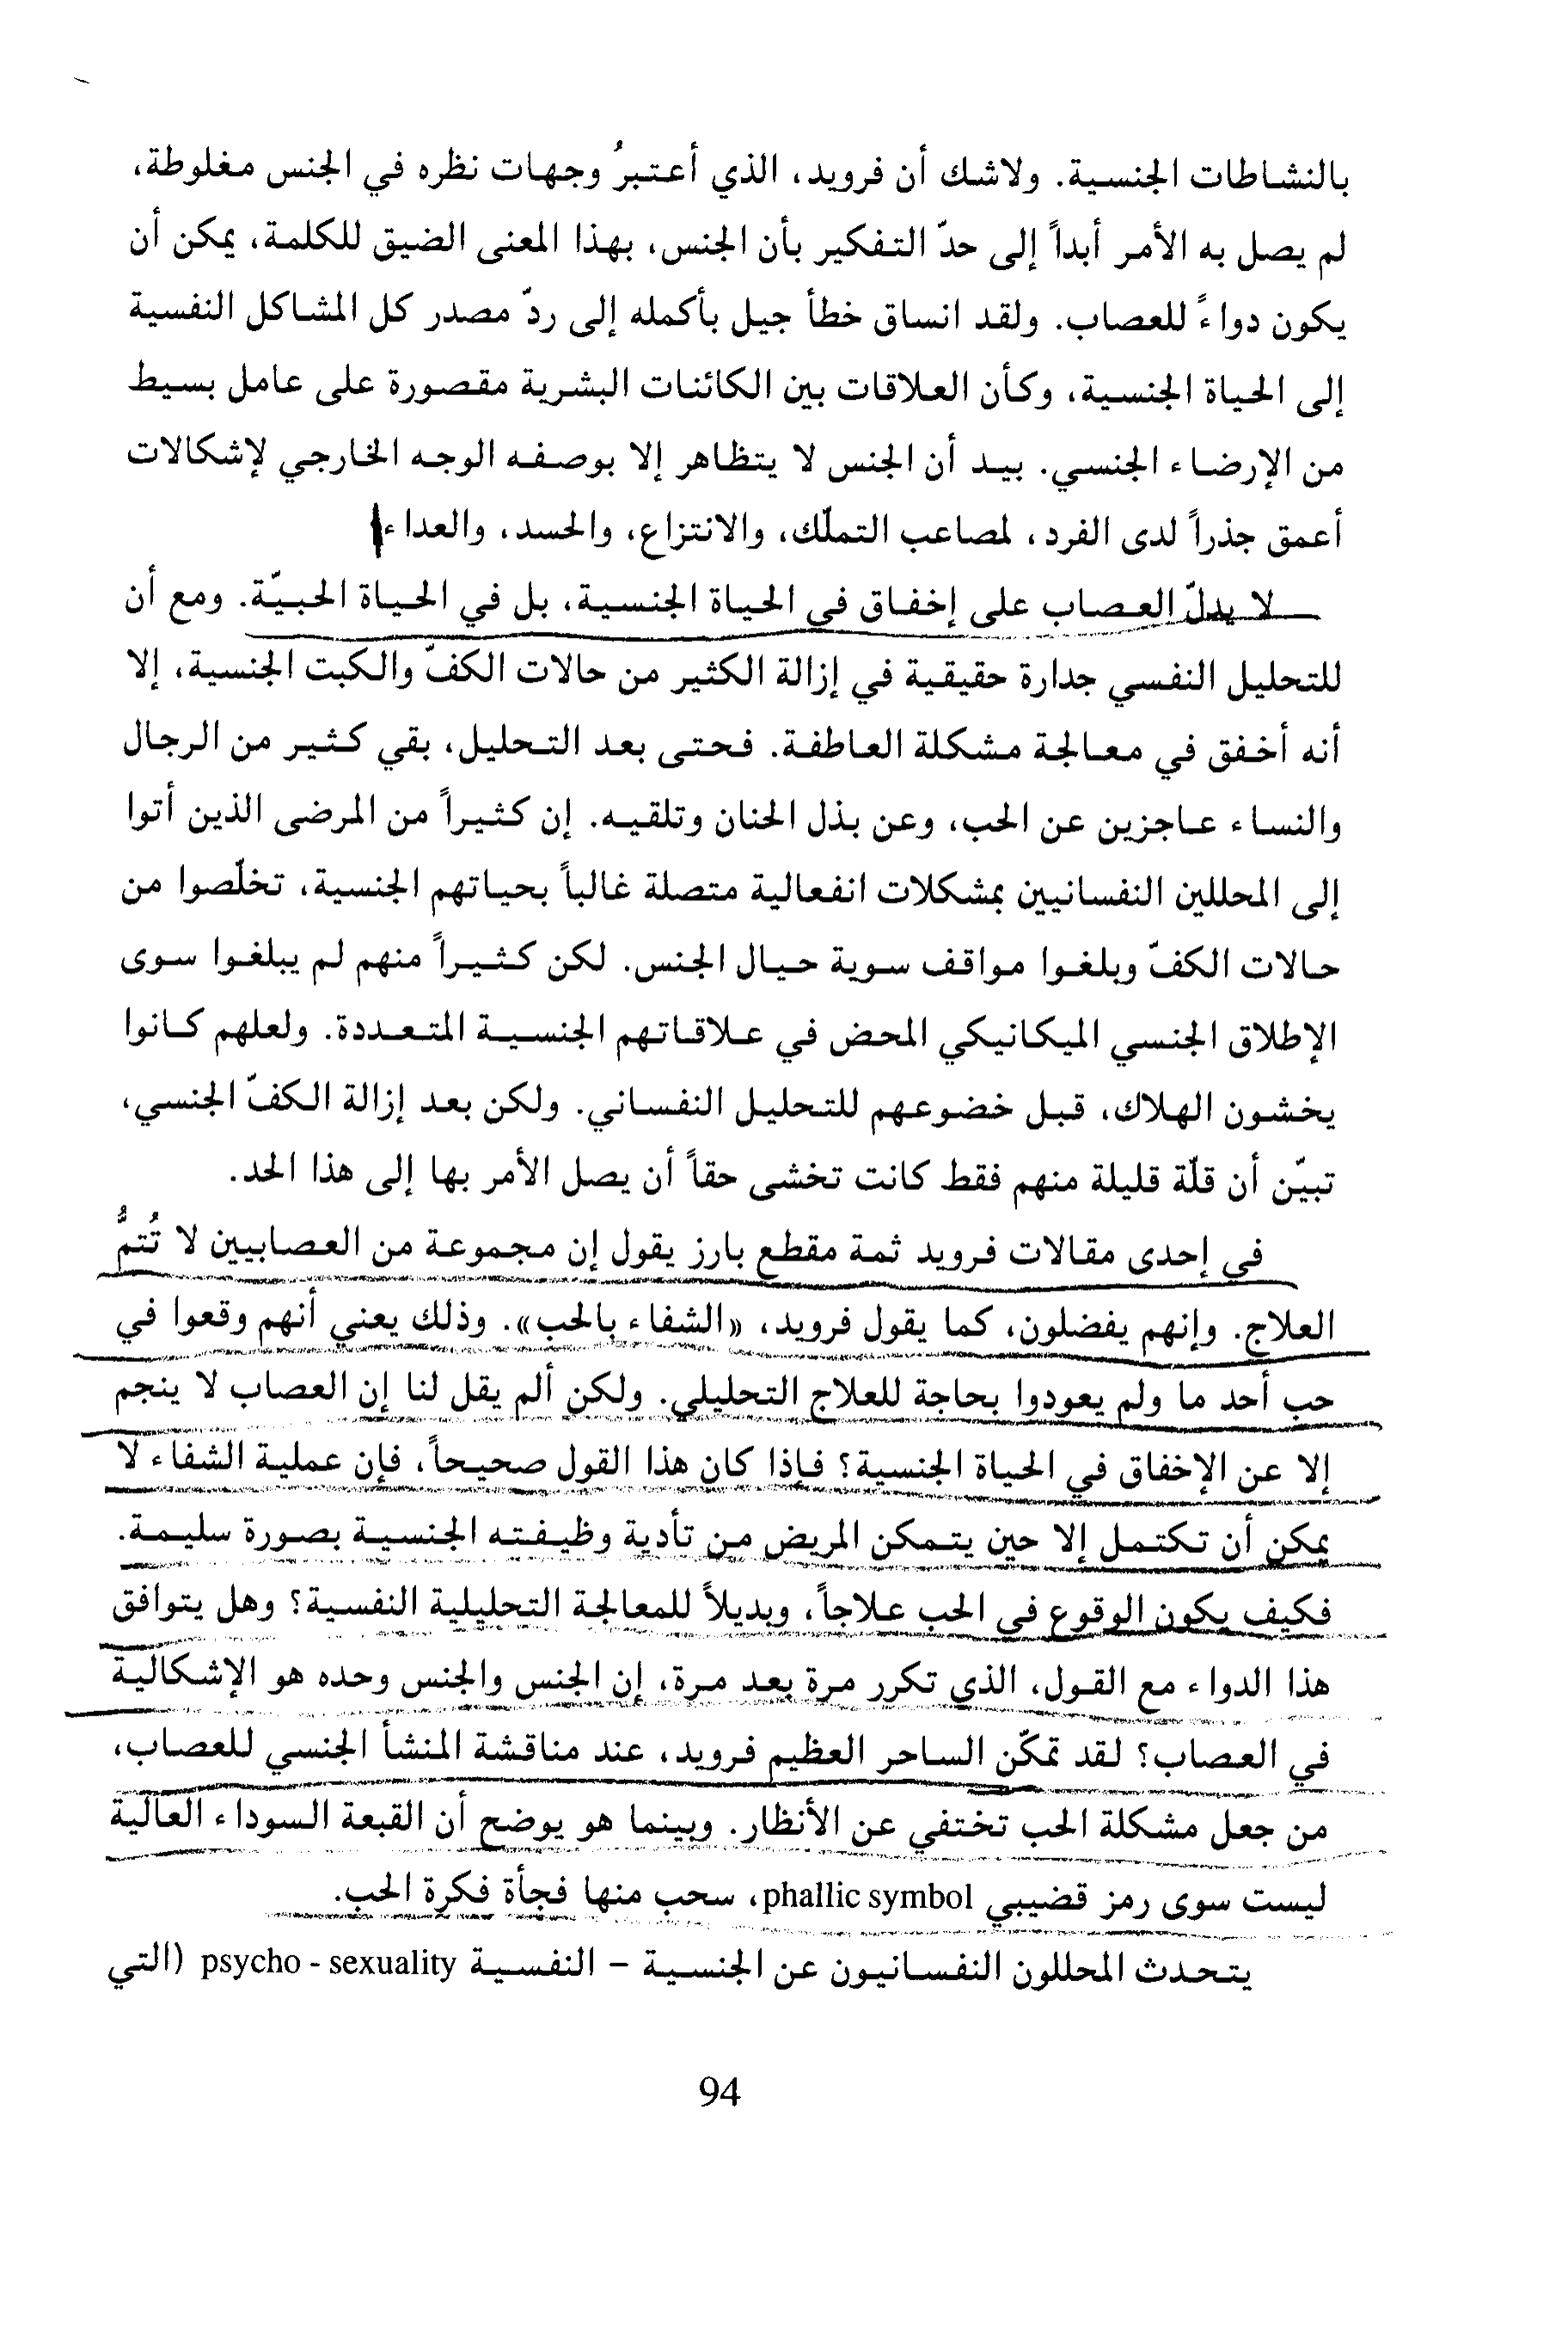 بالنشاطات الجنسية. ولاشك أن فرويد، الذي أعتبرُ وجهات نظره في الجنس مغلوطة،
لم يصل به الأمر أبداً إلى حدّ التفكير بأن الجنس، بهذا المعنى الضيق للكلمة، يمكن أن
يكون دواءً للعصاب. ولقد انساق خطأ جيل بأكمله إلى ردّ مصدر كل المشاكل النفسية
إلى الحياة الجنسية، وكأن العلاقات بين الكائنات البشرية مقصورة على عامل بسيط
من الإرضاء الجنسي. بيد أن الجنس لا يتظاهر إلا بوصفه الوجه الخارجي لإشكالات
أعمق جذراً لدى الفرد، لمصاعب التملّك، والانتزاع، والحسد، والعداء
لا يدلّ العصاب على إخفاق في الحياة الجنسية، بل في الحياة الحبيّة. ومع أن
للتحليل النفسي جدارة حقيقية في إزالة الكثير من حالات الكفّ والكبت الجنسية، إلا
أنه أخفق في معالجة مشكلة العاطفة. فحتى بعد التحليل، بقي كثير من الرجال
والنساء عاجزين عن الحب، وعن بذل الحنان وتلقيه. إن كثيراً من المرضى الذين أتوا
إلى المحللين النفسانيين بمشكلات انفعالية متصلة غالباً بحياتهم الجنسية، تخلّصوا من
حالات الكفّ وبلغوا مواقف سوية حيال الجنس. لكن كثيراً منهم لم يبلغوا سوى
الإطلاق الجنسي الميكانيكي المحض في علاقاتهم الجنسية المتعددة. ولعلهم كانوا
يخشون الهلاك، قبل خضوعهم للتحليل النفساني. ولكن بعد إزالة الكفّ الجنسي،
تبيّن أن قلّة قليلة منهم فقط كانت تخشى حقاً أن يصل الأمر بها إلى هذا الحد.
في إحدى مقالات فرويد ثمة مقطع بارز يقول إن مجموعة من العصابيين لا تُتمُّ
العلاج. وإنهم يفضلون، كما يقول فرويد، «الشفاء بالحب». وذلك يعني أنهم وقعوا في
حب أحد ما ولم يعودوا بحاجة للعلاج التحليلي. ولكن ألم يقل لنا إن العصاب لا ينجم
إلا عن الإخفاق في الحياة الجنسية؟ فإذا كان هذا القول صحيحاً، فإن عملية الشفاء لا
يمكن أن تكتمل إلا حين يتمكن المريض من تأدية وظيفته الجنسية بصورة سليمة.
فكيف يكون الوقوع في الحب علاجاً، وبديلاً للمعالجة التحليلية النفسية؟ وهل يتوافق
هذا الدواء مع القول، الذي تكرر مرة بعد مرة، إن الجنس والجنس وحده هو الإشكالية
في العصاب؟ لقد تمكّن الساحر العظيم فرويد، عند مناقشة المنشأ الجنسي للعصاب،
من جعل مشكلة الحب تختفي عن الأنظار. وبينما هو يوضح أن القبعة السوداء العالية
ليست سوى رمز قضيبي phallic symbol، سحب منها فجأة فكرة الحب.
يتحدث المحللون النفسانيون عن الجنسية - النفسية psycho - sexuality (التي
94